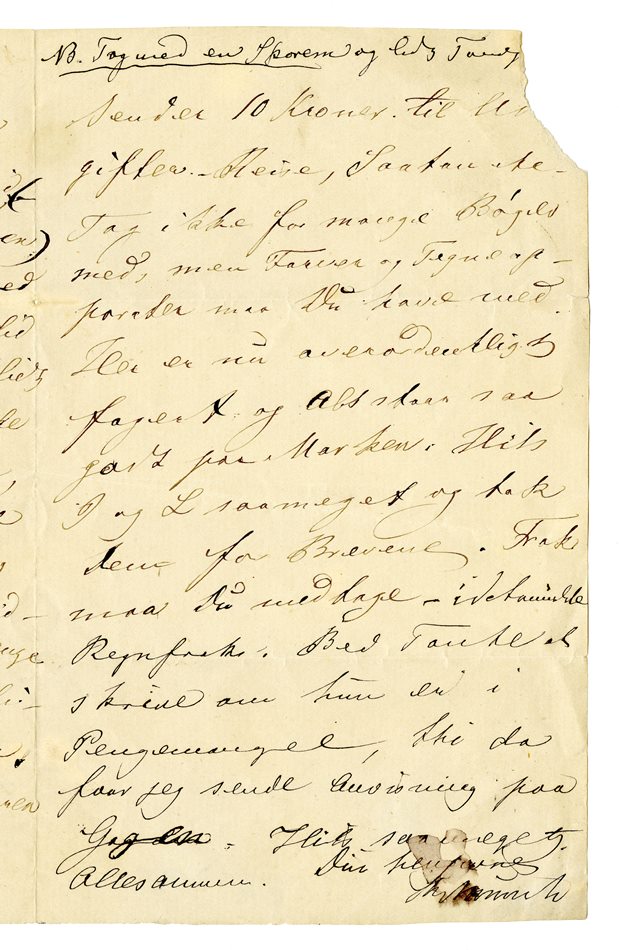 NB. Tag med en Skorem og lidt
sender 10 Kroner til Ud
gifter. – Reise, Saadan etc.
Tag ikke for mange Bøger
med, men Farver og Tegneap-
parater maa Du have med.
Her er nu overordentligt
fagert og Alt staar saa
godt paa Marken. Hils
I og L saameget og tak
dem for Brevene. Frak
maa Du medtage – idetmindste
Regnfrak. Bed Tante at
skrive om hun er i
Pengemangel, thi da
faar jeg sende Anvisning paa
Gagen. Hils saameget.
Allesammen. Din hengivne